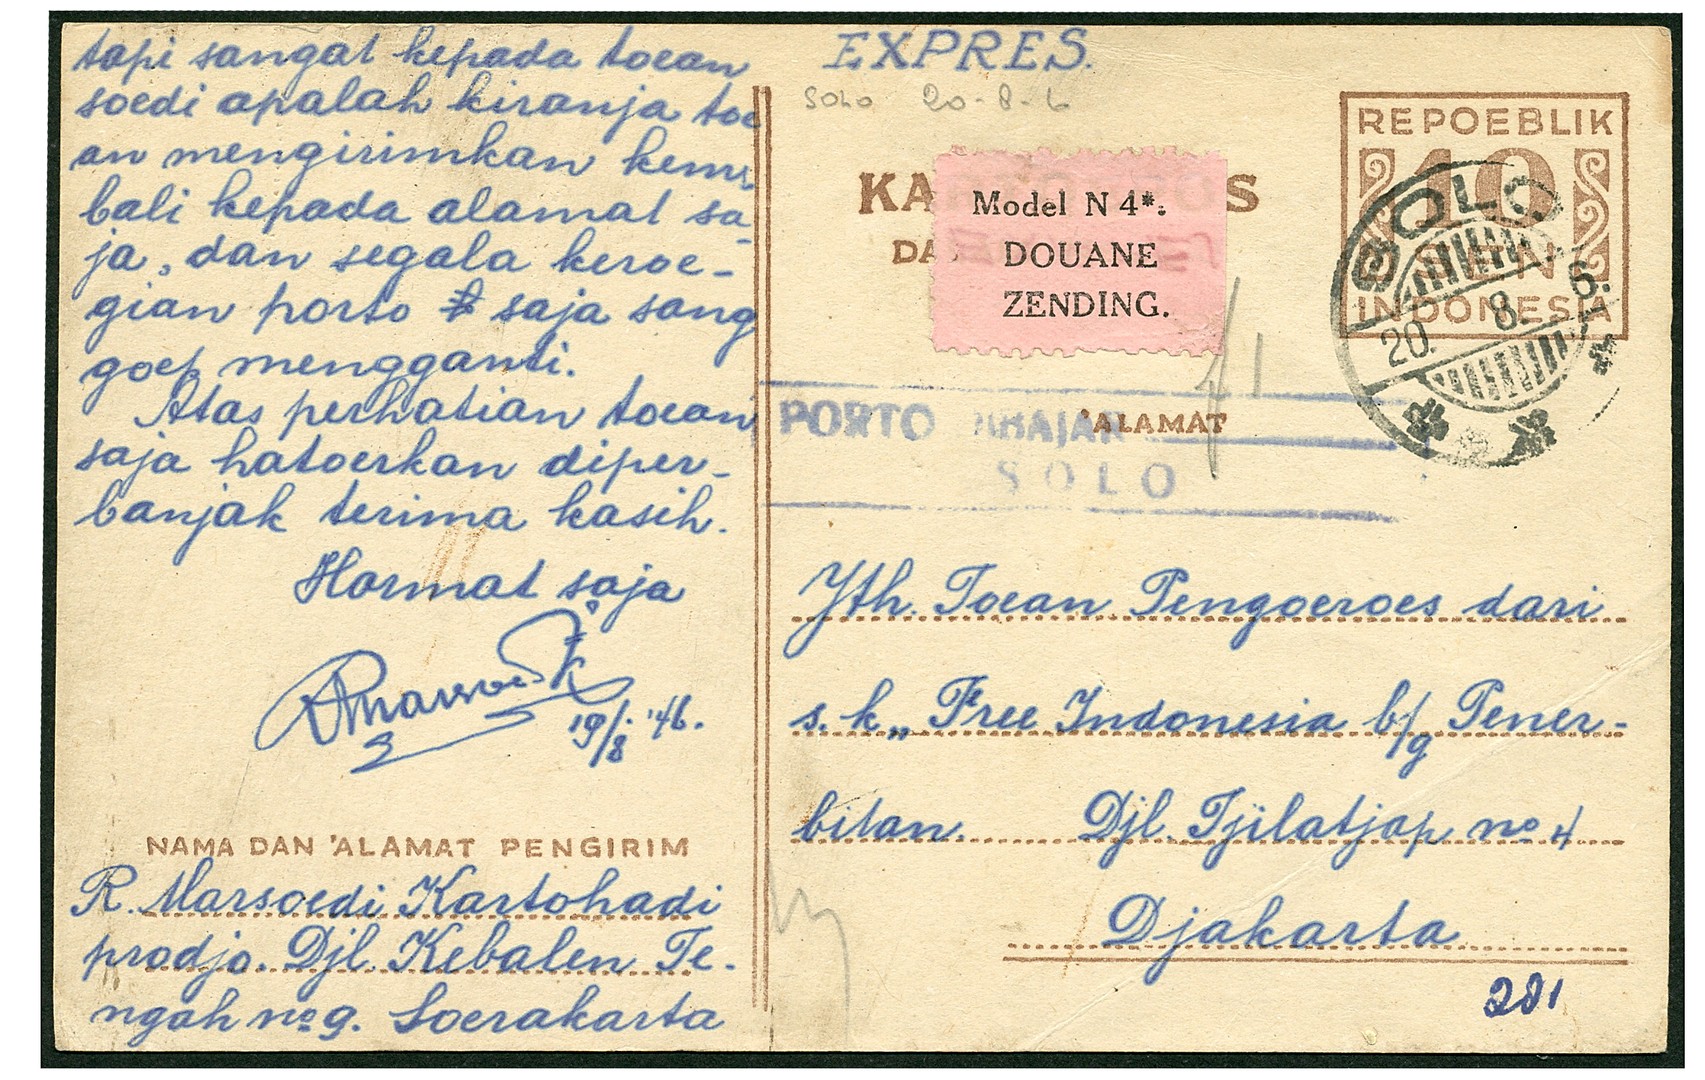 tapi sangat kepada toean
soedi apalah kiranja toe
an mengirimkan kem
bali kepada alamat sa-
ja, dan segala keroe-
gian porto saja sang
goep mengganti.
Atas perhatian toean
saja hatoerkan diper-
banjak terima kasih.
Hormat saja
19/8 '46.
NAMA DAN 'ALAMAT PENGIRIM
R. Marsoedi Kartohadi
prodjo. Djl. Kebalen Te-
ngah no 9. Soerakarta
EXPRES.
SOLO 20-8-6
REPOEBLIK
10
SEN
INDONESIA
KA OS
DA
Model N 4*:
DOUANE
ZENDING.
SOLO
20. 8. 6.
PORTO DIBAJAR
SOLO
'ALAMAT
Yth. Toean Pengoeroes dari
s. k „ Free Indonesia b/g Pener-
bitan. Djl. Tjilatjap no 4
Djakarta
281